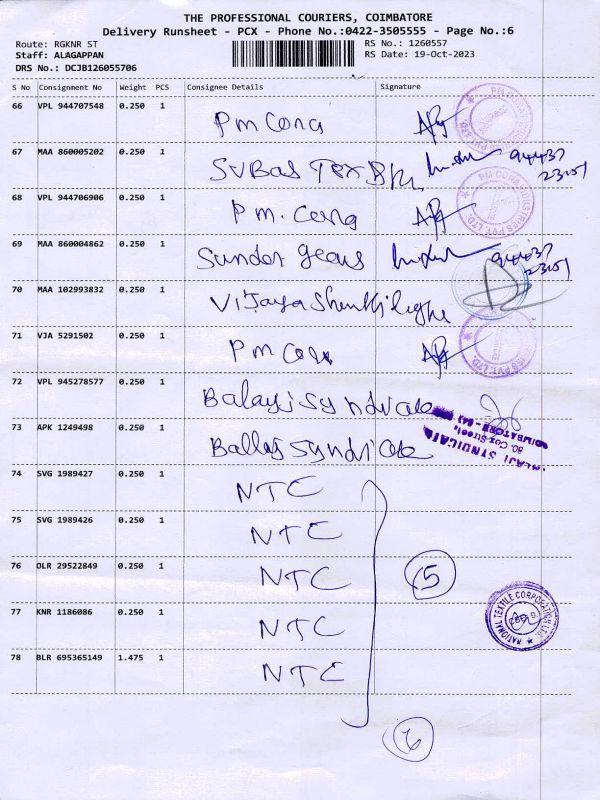 THE PROFESSIONAL COURIERS, COIMBATORE
Delivery Runsheet - PCX - Phone No.:0422-3505555 - Page No.:6
Route: RGKNR ST
RS No.: 1260557
Staff: ALAGAPPAN
RS Date: 19-Oct-2023
DRS No.: DCJB126055706
S No Consignment No Weight PCS Consignee Details Signature
66 VPL 944707548 0.250 1 Pm Cong
67 MAA 860005202 0.250 1 SUBAS Tex 94437
23051
68 VPL 944706906 0.250 1 Pm. Cong
69 MAA 860004862 0.250 1 Sunder gears 94437
23051
70 MAA 102993832 0.250 1 Vijaya
71 VJA 5291502 0.250 1 Pm Con
72 VPL 945278577 0.250 1 Balaji syndicate
73 APK 1249498 0.250 1 Ballaj syndicate
BALAJI SYNDICATE
80, Cox Street,
COIMBATORE
74 SVG 1989427 0.250 1 NTC
75 SVG 1989426 0.250 1 NTC
76 OLR 29522849 0.250 1 NTC 15
77 KNR 1186086 0.250 1 NTC
NATIONAL TEXTILE CORPORATION LTD.
78 BLR 695365149 1.475 1 NTC